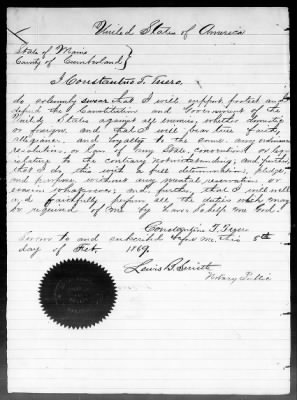 United States of America
State of Maine
County of Cumberland
I Constantine T.
do solemnly swear that I will support, protect and
defend the Constitution and Government of the
United States against all enemies, whether domestic
or foreign, and that I will bear true faith,
allegiance, and loyalty to the same, any ordinance
resolution, or law of any State, convention or Leg
relative to the contrary notwithstanding; and further,
that I do this with a full determination, pledge,
and purpose, without any mental reservation or
evasion whatsoever; and, further, that I will well
and faithfully perform all the duties which may
be required of me by law. So help me God.
Constantine T.
Sworn to and subscribed before me this 8th
day of Feb 1869.
Lewis B. Smith
Notary Public